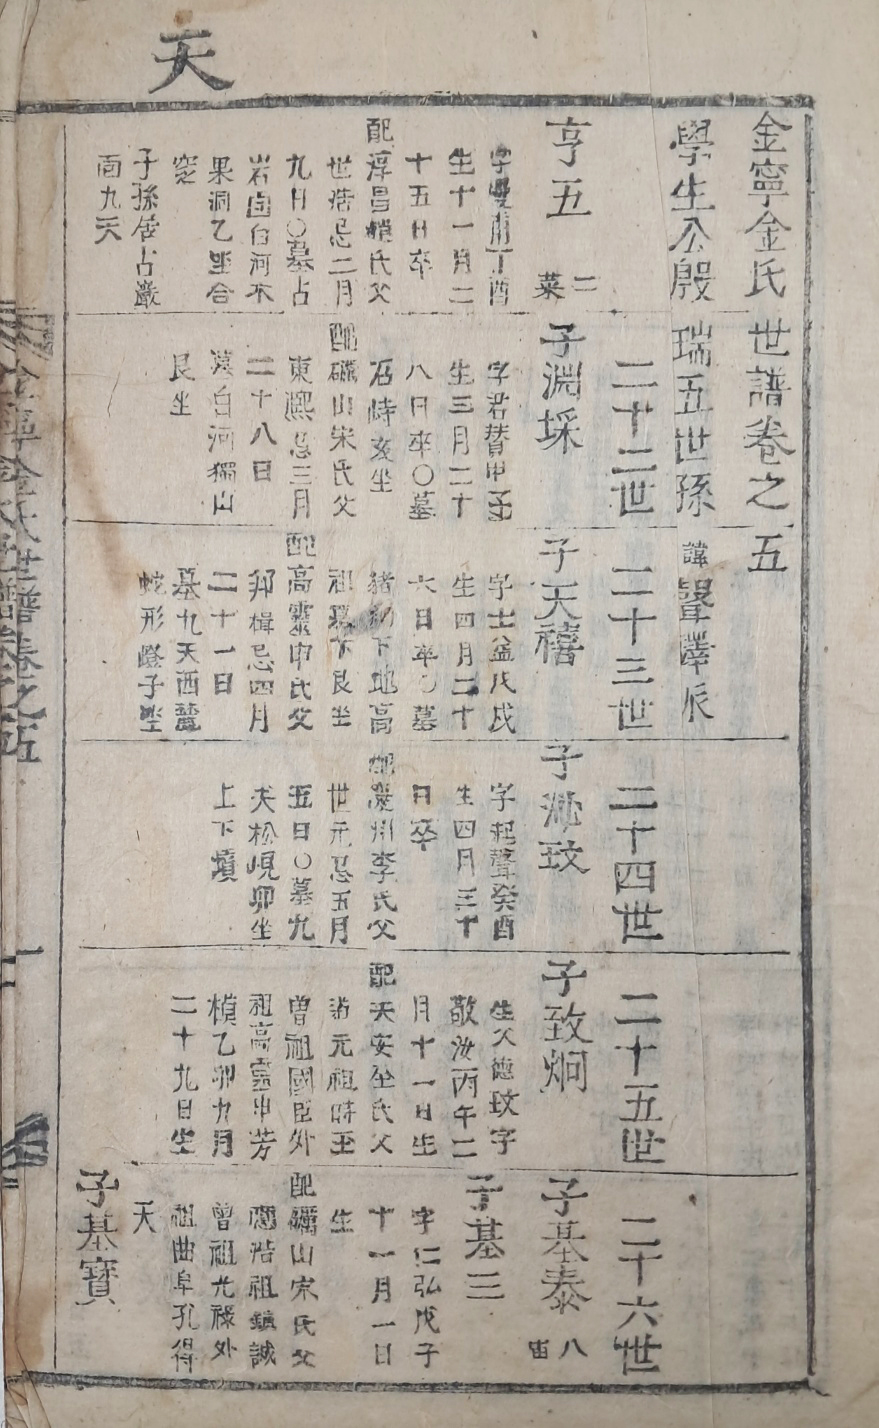 天
金寧金氏世譜卷之五
學生公殷瑞五世孫
諱聲澤派
亨五
二
菜
生十一月二
十五日卒
配淳昌趙氏父
世浩忌二月
九日〇墓占
岩面白河木
果洞乙坐合
窆
子孫居占巖
面九天
二十二世
子淵埰
字君賛甲子
生三月二十
八日卒〇墓
石峙亥坐
配礪山宋氏父
東熙忌三月
二十八日
墓白河獨山
艮坐
二十三世
子天禧
字士益戊戌
生四月二十
六日卒〇墓
下地高
祖墓下艮坐
配高靈申氏父
邦楫忌四月
二十一日
墓九天酉麓
蛇形嶝子坐
二十四世
子 玟
字起聲癸酉
生四月三十
日卒
配慶州李氏父
世元忌五月
五日〇墓九
天松峴卯坐
上下墳
二十五世
子致炯
生父德玟字
敬汝丙午二
月十一日生
配天安全氏父
元祖時
曾祖國臣外
祖高靈申芳
楨乙卯九月
二十九日生
二十六世
子基泰
八
宙
子基三
字仁弘戊子
十一月一日
生
配礪山宋氏父
浩祖鎮誠
曾祖光祿外
祖曲阜孔得
天
子基寶
金寧金氏世譜卷之五
一